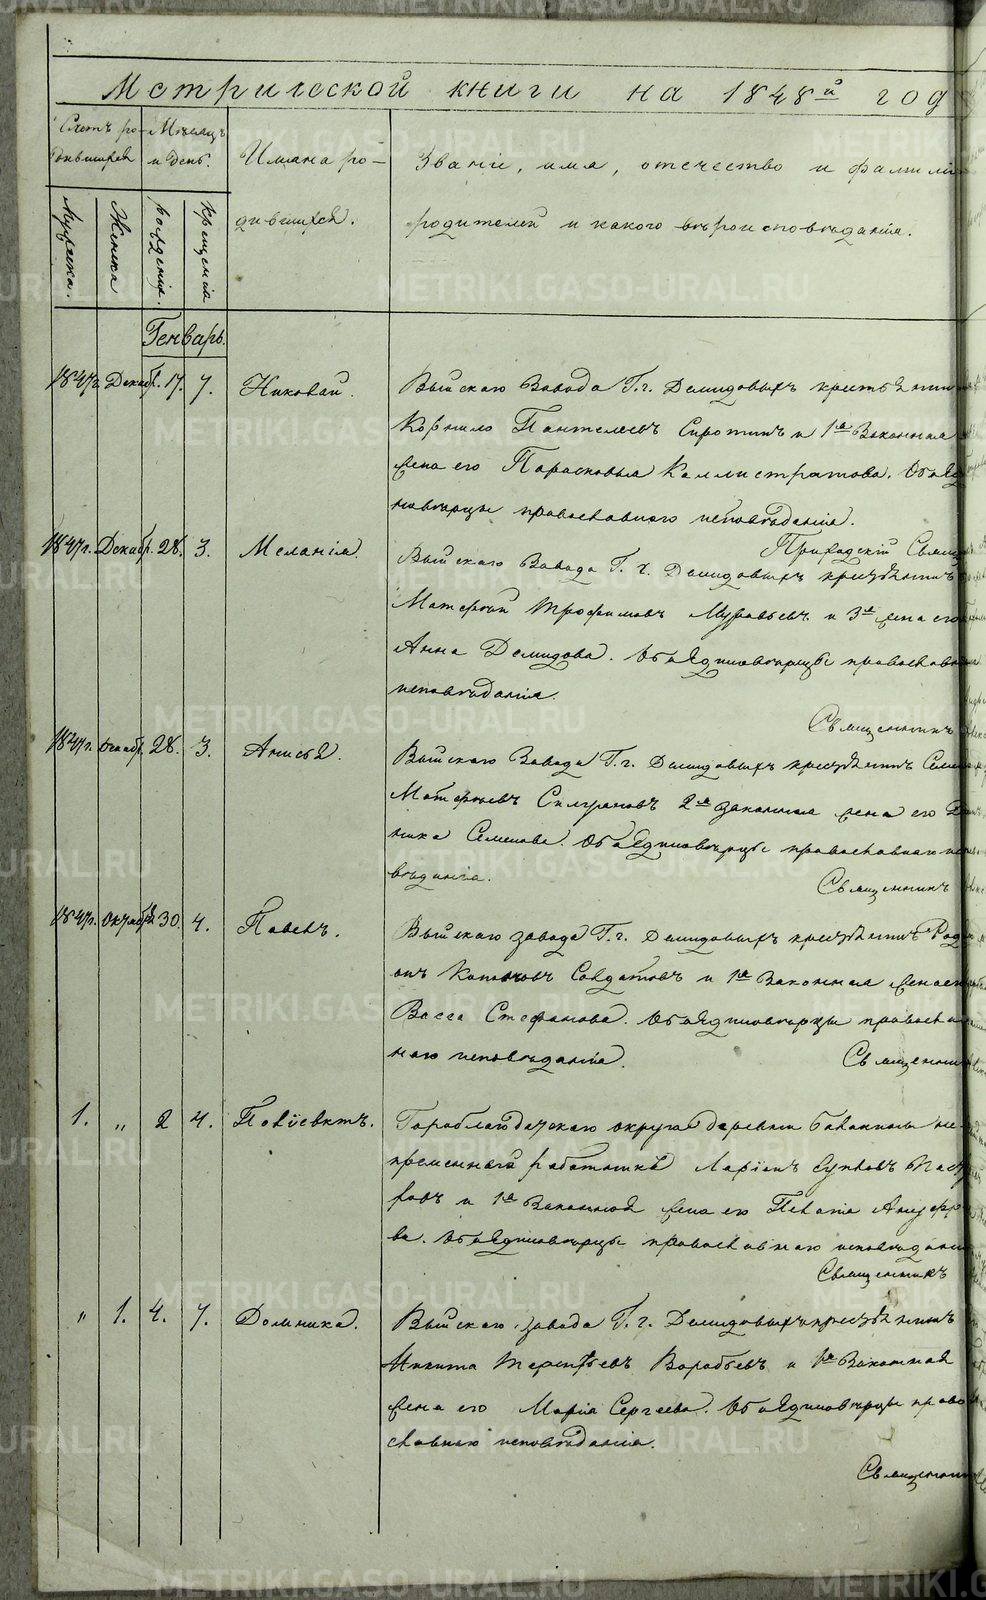 Метрической книги на 1848й год
Счетъ ро-
дившихся
Мѣсяцъ
и день.
Имена ро-
дившихся.
Званіе, имя, отечество и фамилія
родителей и какого вѣроисповѣданія.
Мужеска.
Женска
рожденія.
крещенія
Генварь.
1847г. Декабр. 17. 7. Николай. Выйскаго Завода Г.г. Демидовыхъ крестьянинъ
Корнило Пантелеевъ Сиротинъ и 1я Законная
жена его Парасковья Каллистратова. Оба Ед
новѣрцы православнаго исповѣданія.
Приходскій Свящ
1847г. Декабр. 28. 3. Меланія. Выйскаго Завода Г. г. Демидовыхъ крестьянинъ
Матфей Трофимовъ Муравьевъ и 3я жена его
Анна Демидова. Оба Единовѣрцы православ
исповѣданія.
Священникъ
1847г. Декабр. 28. 3. Анисья. Выйскаго Завода Г. г. Демидовыхъ крестьянинъ Семе
Матфеевъ 2я законная жена его
ника Семенова. Оба Единовѣрцы православнаго испо
вѣданія.
Священникъ
1847г. Октября 30. 4. Павелъ. Выйскаго завода Г. г. Демидовыхъ крестьянинъ Роді
онъ Солдатовъ и 1я Законная жена его
Васса Стефанова. Оба Единовѣрцы правосла
наго исповѣданія.
Священник
1. „ 2 4. Полуевктъ. Гороблагодатскаго округа деревни Балакиной не
премѣнный работникъ Ларіонъ
ровъ и 1я Законная жена его Пелагія
ва. Оба Единовѣрцы православнаго исповѣдані
Священникъ
„ 1. 4. 7. Домника. Выйскаго завода Г. г. Демидовыхъ крестьянинъ
Никита Терентьевъ Воробьевъ и 1я Законная
жена его Марія Сергеева. Оба Единовѣрцы право
славнаго исповѣданія.
Священник
METRIKI.GASO-URAL.RU